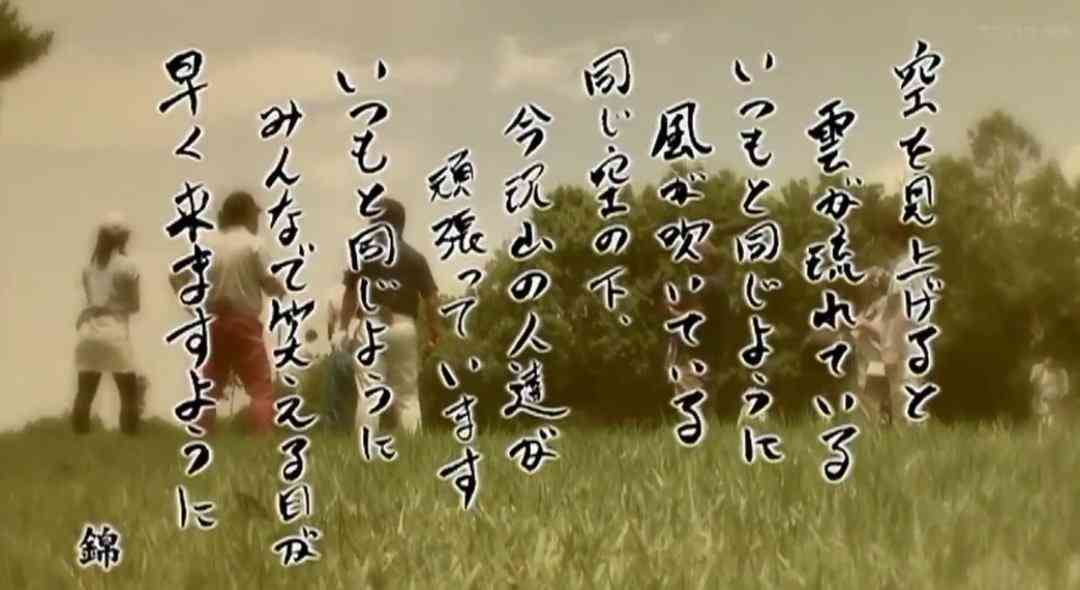 空を見上げると
雲が流れている
いつもと同じように
風が吹いている
同じ空の下、
今沢山の人達が
頑張っています
いつもと同じように
みんなで笑える日が
早く来ますように
錦